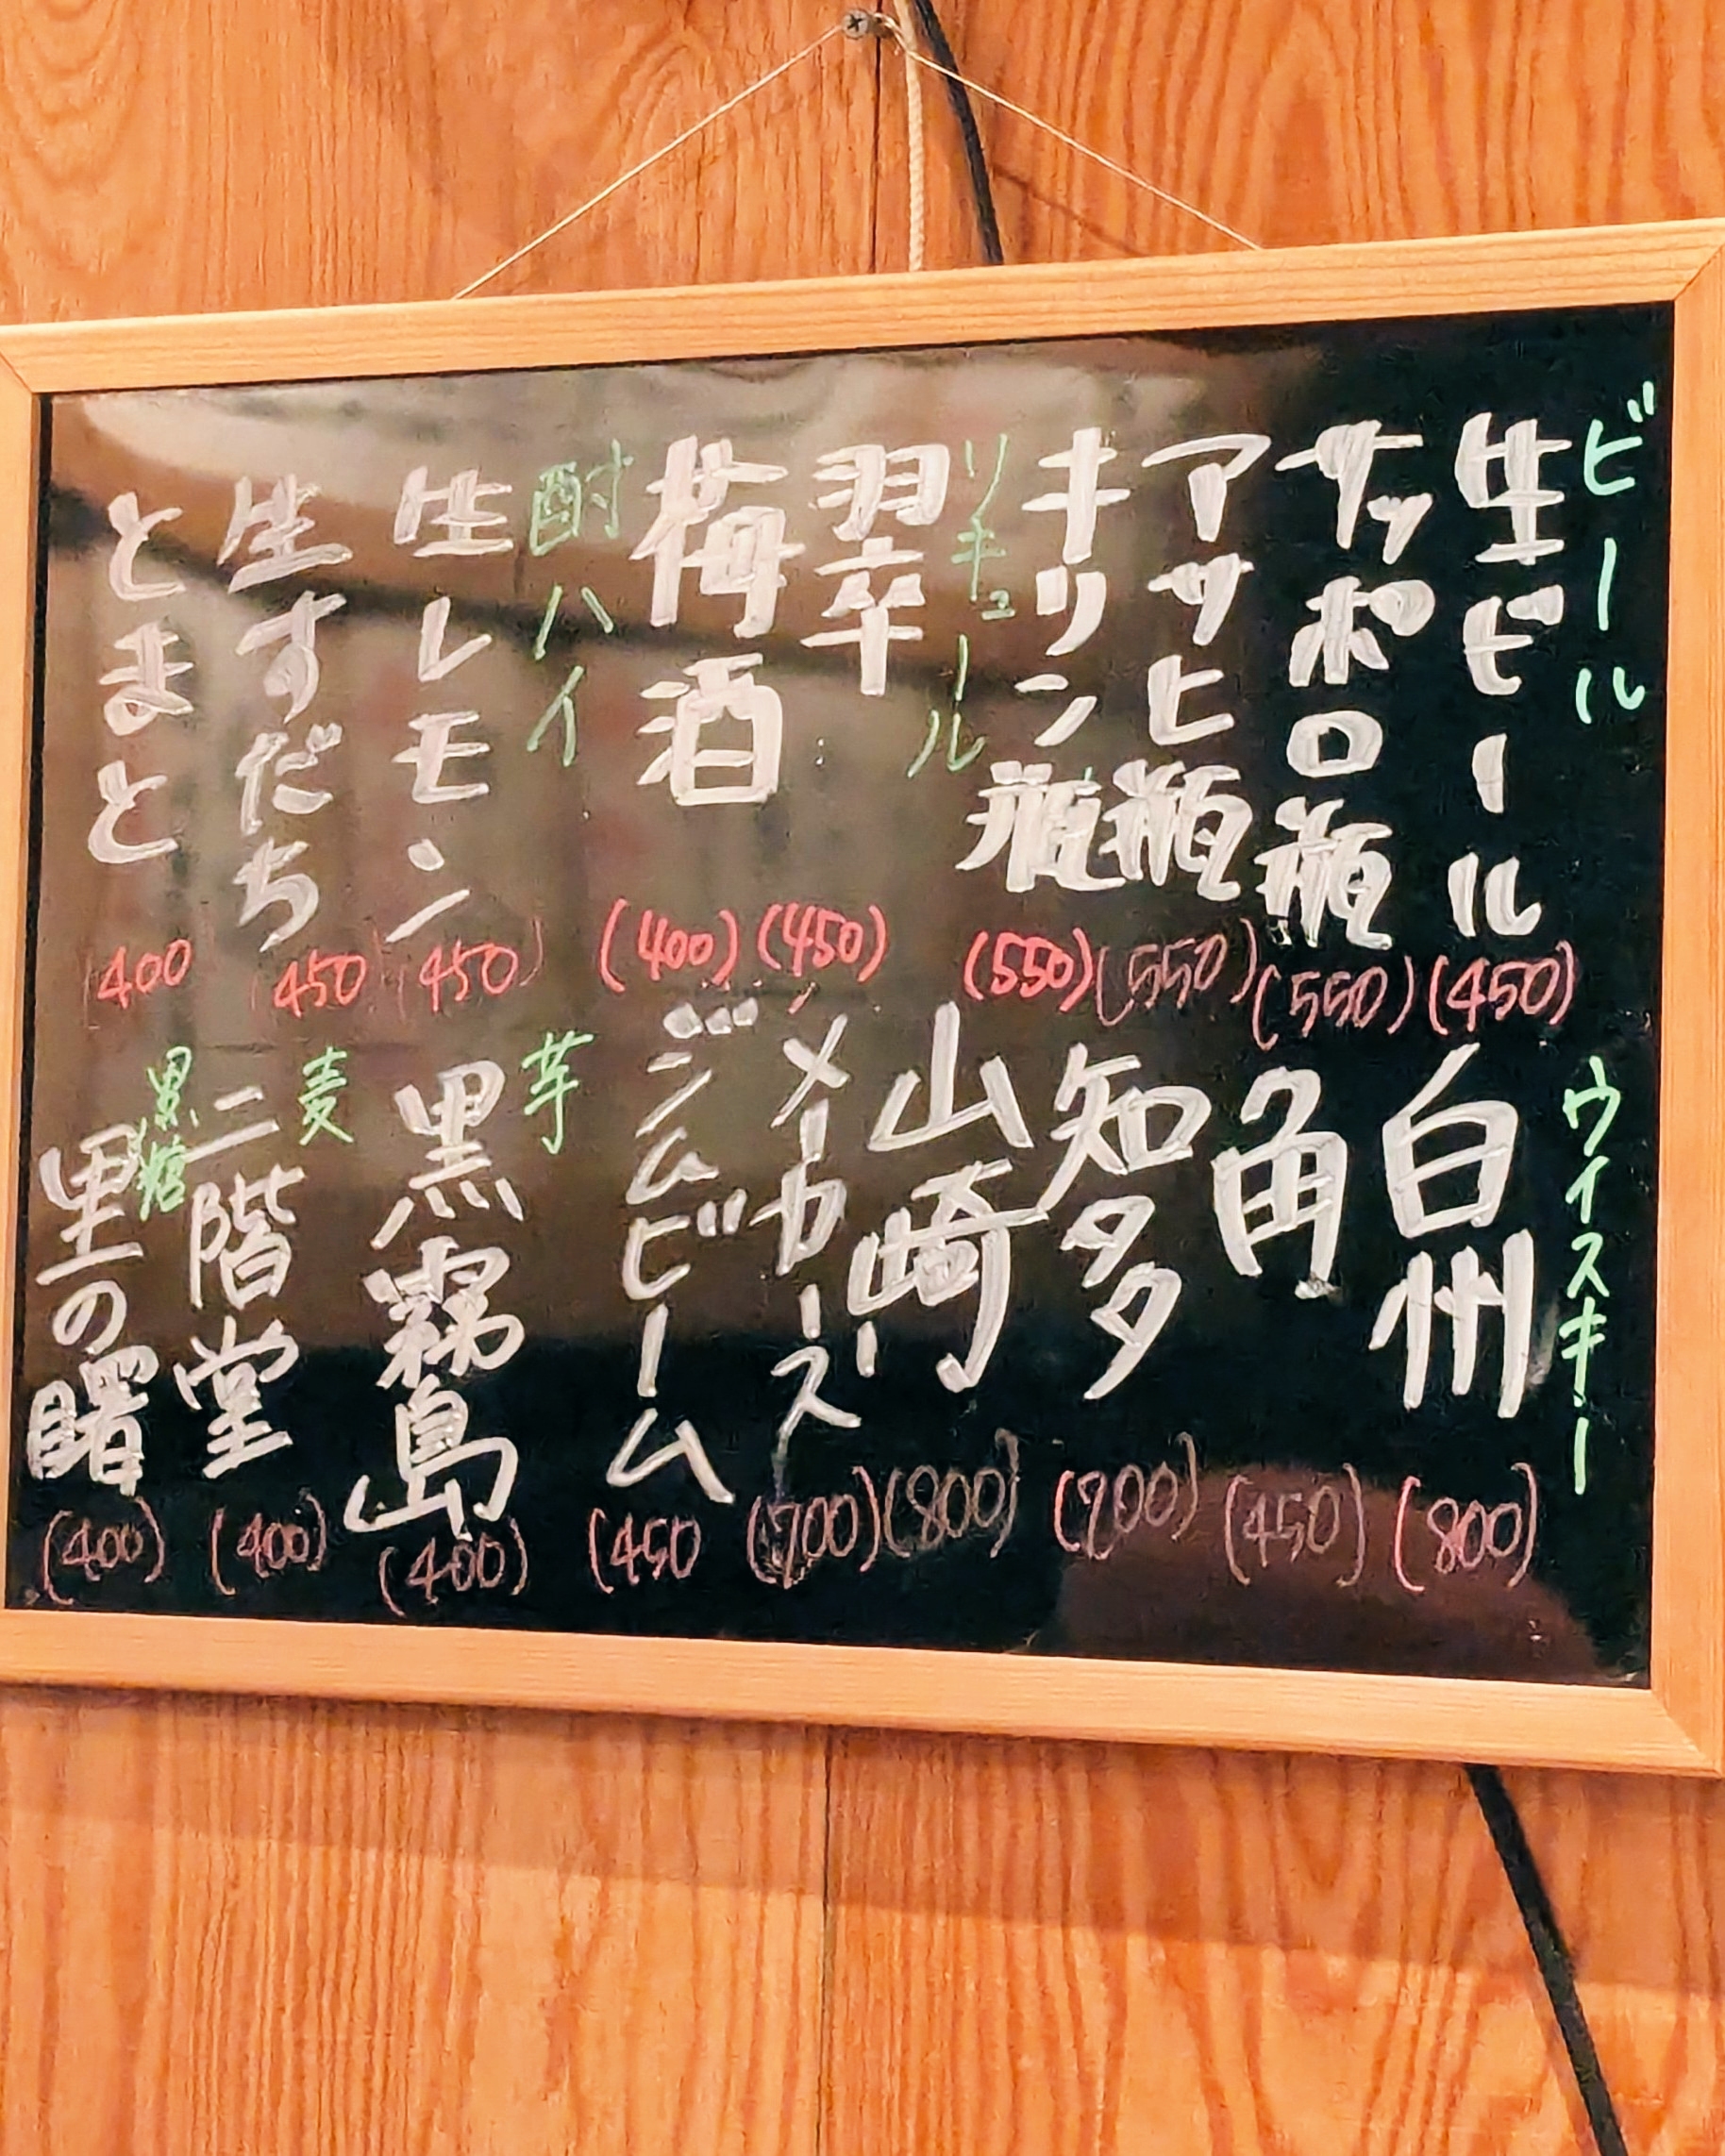 ビール
生ビール (450)
サッポロ瓶 (550)
アサヒ瓶 (550)
キリン瓶 (550)
リキュール
翠 (450)
梅酒 (400)
酎ハイ
生レモン (450)
生すだち (450
とまと (400
ウイスキー
白州 (800)
角 (450)
知多 (700)
山崎 (800)
メーカーズ (700)
ジムビーム (450
芋
黒霧島 (400)
麦
二階堂 (400)
黒糖
里の曙 (400)